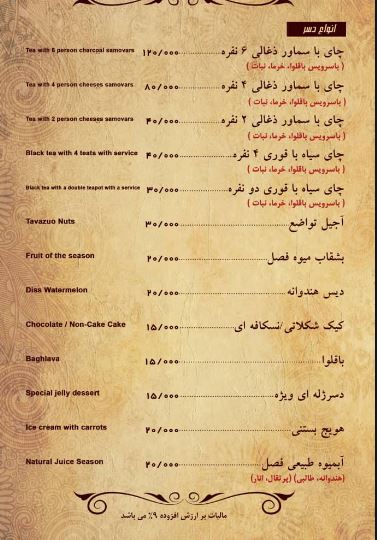 انواع دسر
Tea with 6 person charcoal samovars ۱۲۰/۰۰۰ چای با سماور ذغالی ۶ نفره
( باسرویس باقلوا، خرما، نبات )
Tea with 4 person cheeses samovars ۸۰/۰۰۰ چای با سماور ذغالی ۴ نفره
( باسرویس باقلوا، خرما، نبات )
Tea with 2 person cheeses samovars ۴۰/۰۰۰ چای با سماور ذغالی ۲ نفره
( باسرویس باقلوا، خرما، نبات )
Black tea with 4 teats with service ۴۰/۰۰۰ چای سیاه با قوری ۴ نفره
( باسرویس باقلوا، خرما، نبات )
Black tea with a double teapot with a service ۳۰/۰۰۰ چای سیاه با قوری دو نفره
( باسرویس باقلوا، خرما، نبات )
Tavazuo Nuts ۳۰/۰۰۰ آجیل تواضع
Fruit of the season ۲۰/۰۰۰ بشقاب میوه فصل
Diss Watermelon ۲۰/۰۰۰ دیس هندوانه
Chocolate / Non-Cake Cake ۱۵/۰۰۰ کیک شکلاتی/نسکافه ای
Baghlava ۱۵/۰۰۰ باقلوا
Special jelly dessert ۱۵/۰۰۰ دسرژله ای ویژه
Ice cream with carrots ۲۰/۰۰۰ هویج بستنی
Natural Juice Season ۲۰/۰۰۰ آبمیوه طبیعی فصل
(هندوانه، طالبی) (پرتقال، انار)
مالیات بر ارزش افزوده ۹٪ می باشد